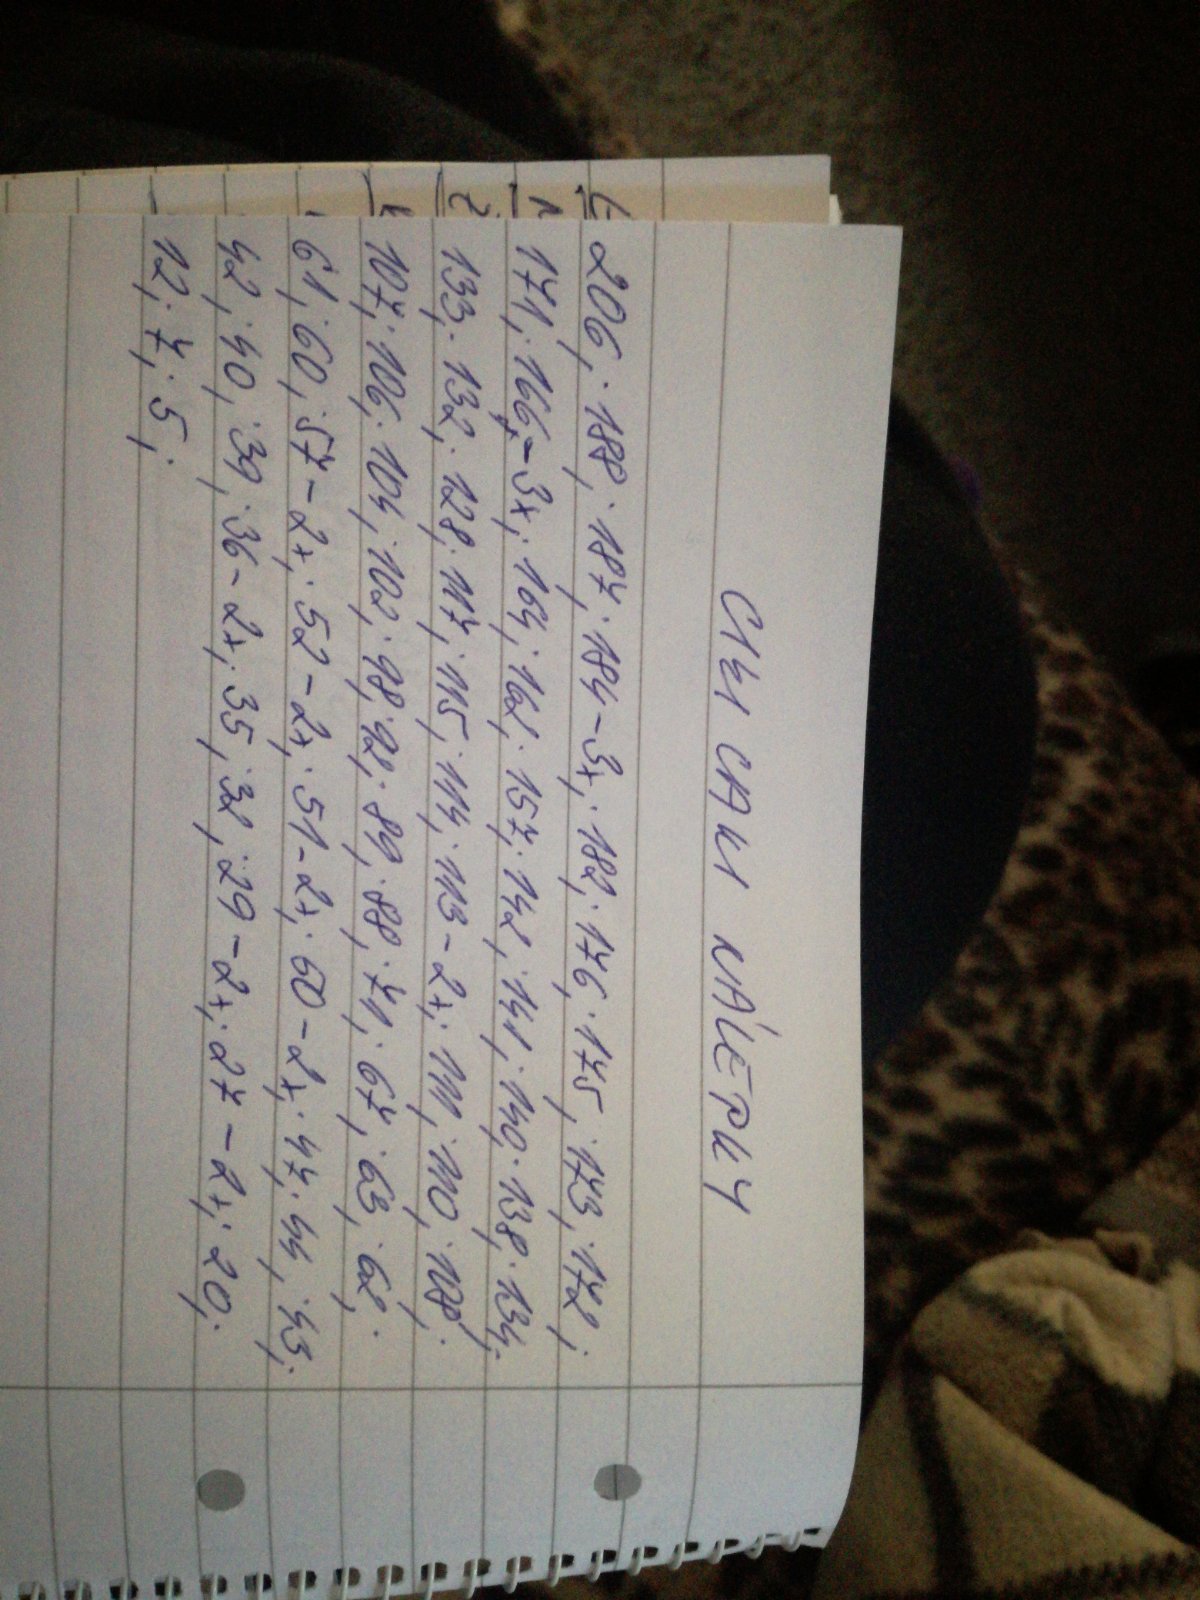 206, . 188, . 187, . 184 - 3x, . 182, . 176, . 175, . 173, . 172, .
171, . 166, - 3x, . 164, . 162, . 157, . 142, . 141, . 140, . 138, . 134, .
133, . 132, . 128, . 117, . 115, . 114, . 113 - 2x, . 111, . 110, . 108, .
107, . 106, . 104, . 102, . 98, . 92, . 89, . 88, . 71, . 67, . 63, . 62, .
61, . 60, . 57 - 2x, . 52 - 2x, . 51 - 2x, . 50 - 2x, . 47, . 44, . 43, .
42, . 40, . 39, . 36 - 2x, . 35, . 32, . 29 - 2x, . 27 - 2x, . 20, .
12, . 7, . 5, .